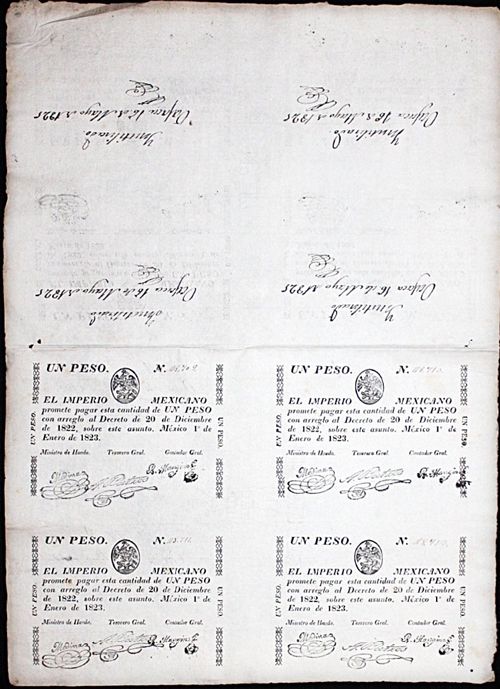 16 de Mayo de 1825
16 de Mayo de 1825
16 de Mayo de 1825
16 de Mayo de 1825
UN PESO. N.
EL IMPERIO MEXICANO
promete pagar esta cantidad de UN PESO
con arreglo al Decreto de 20 de Diciembre
de 1822, sobre este asunto. México 1º de
Enero de 1823.
Ministro de Hacda. Tesorero Gral. Contador Gral.
Medina
UN PESO.
UN PESO.
UN PESO. N.
EL IMPERIO MEXICANO
promete pagar esta cantidad de UN PESO
con arreglo al Decreto de 20 de Diciembre
de 1822, sobre este asunto. México 1º de
Enero de 1823.
Ministro de Hacda. Tesorero Gral. Contador Gral.
Medina
UN PESO.
UN PESO.
UN PESO. N.
EL IMPERIO MEXICANO
promete pagar esta cantidad de UN PESO
con arreglo al Decreto de 20 de Diciembre
de 1822, sobre este asunto. México 1º de
Enero de 1823.
Ministro de Hacda. Tesorero Gral. Contador Gral.
Medina
UN PESO.
UN PESO.
UN PESO. N.
EL IMPERIO MEXICANO
promete pagar esta cantidad de UN PESO
con arreglo al Decreto de 20 de Diciembre
de 1822, sobre este asunto. México 1º de
Enero de 1823.
Ministro de Hacda. Tesorero Gral. Contador Gral.
Medina
UN PESO.
UN PESO.